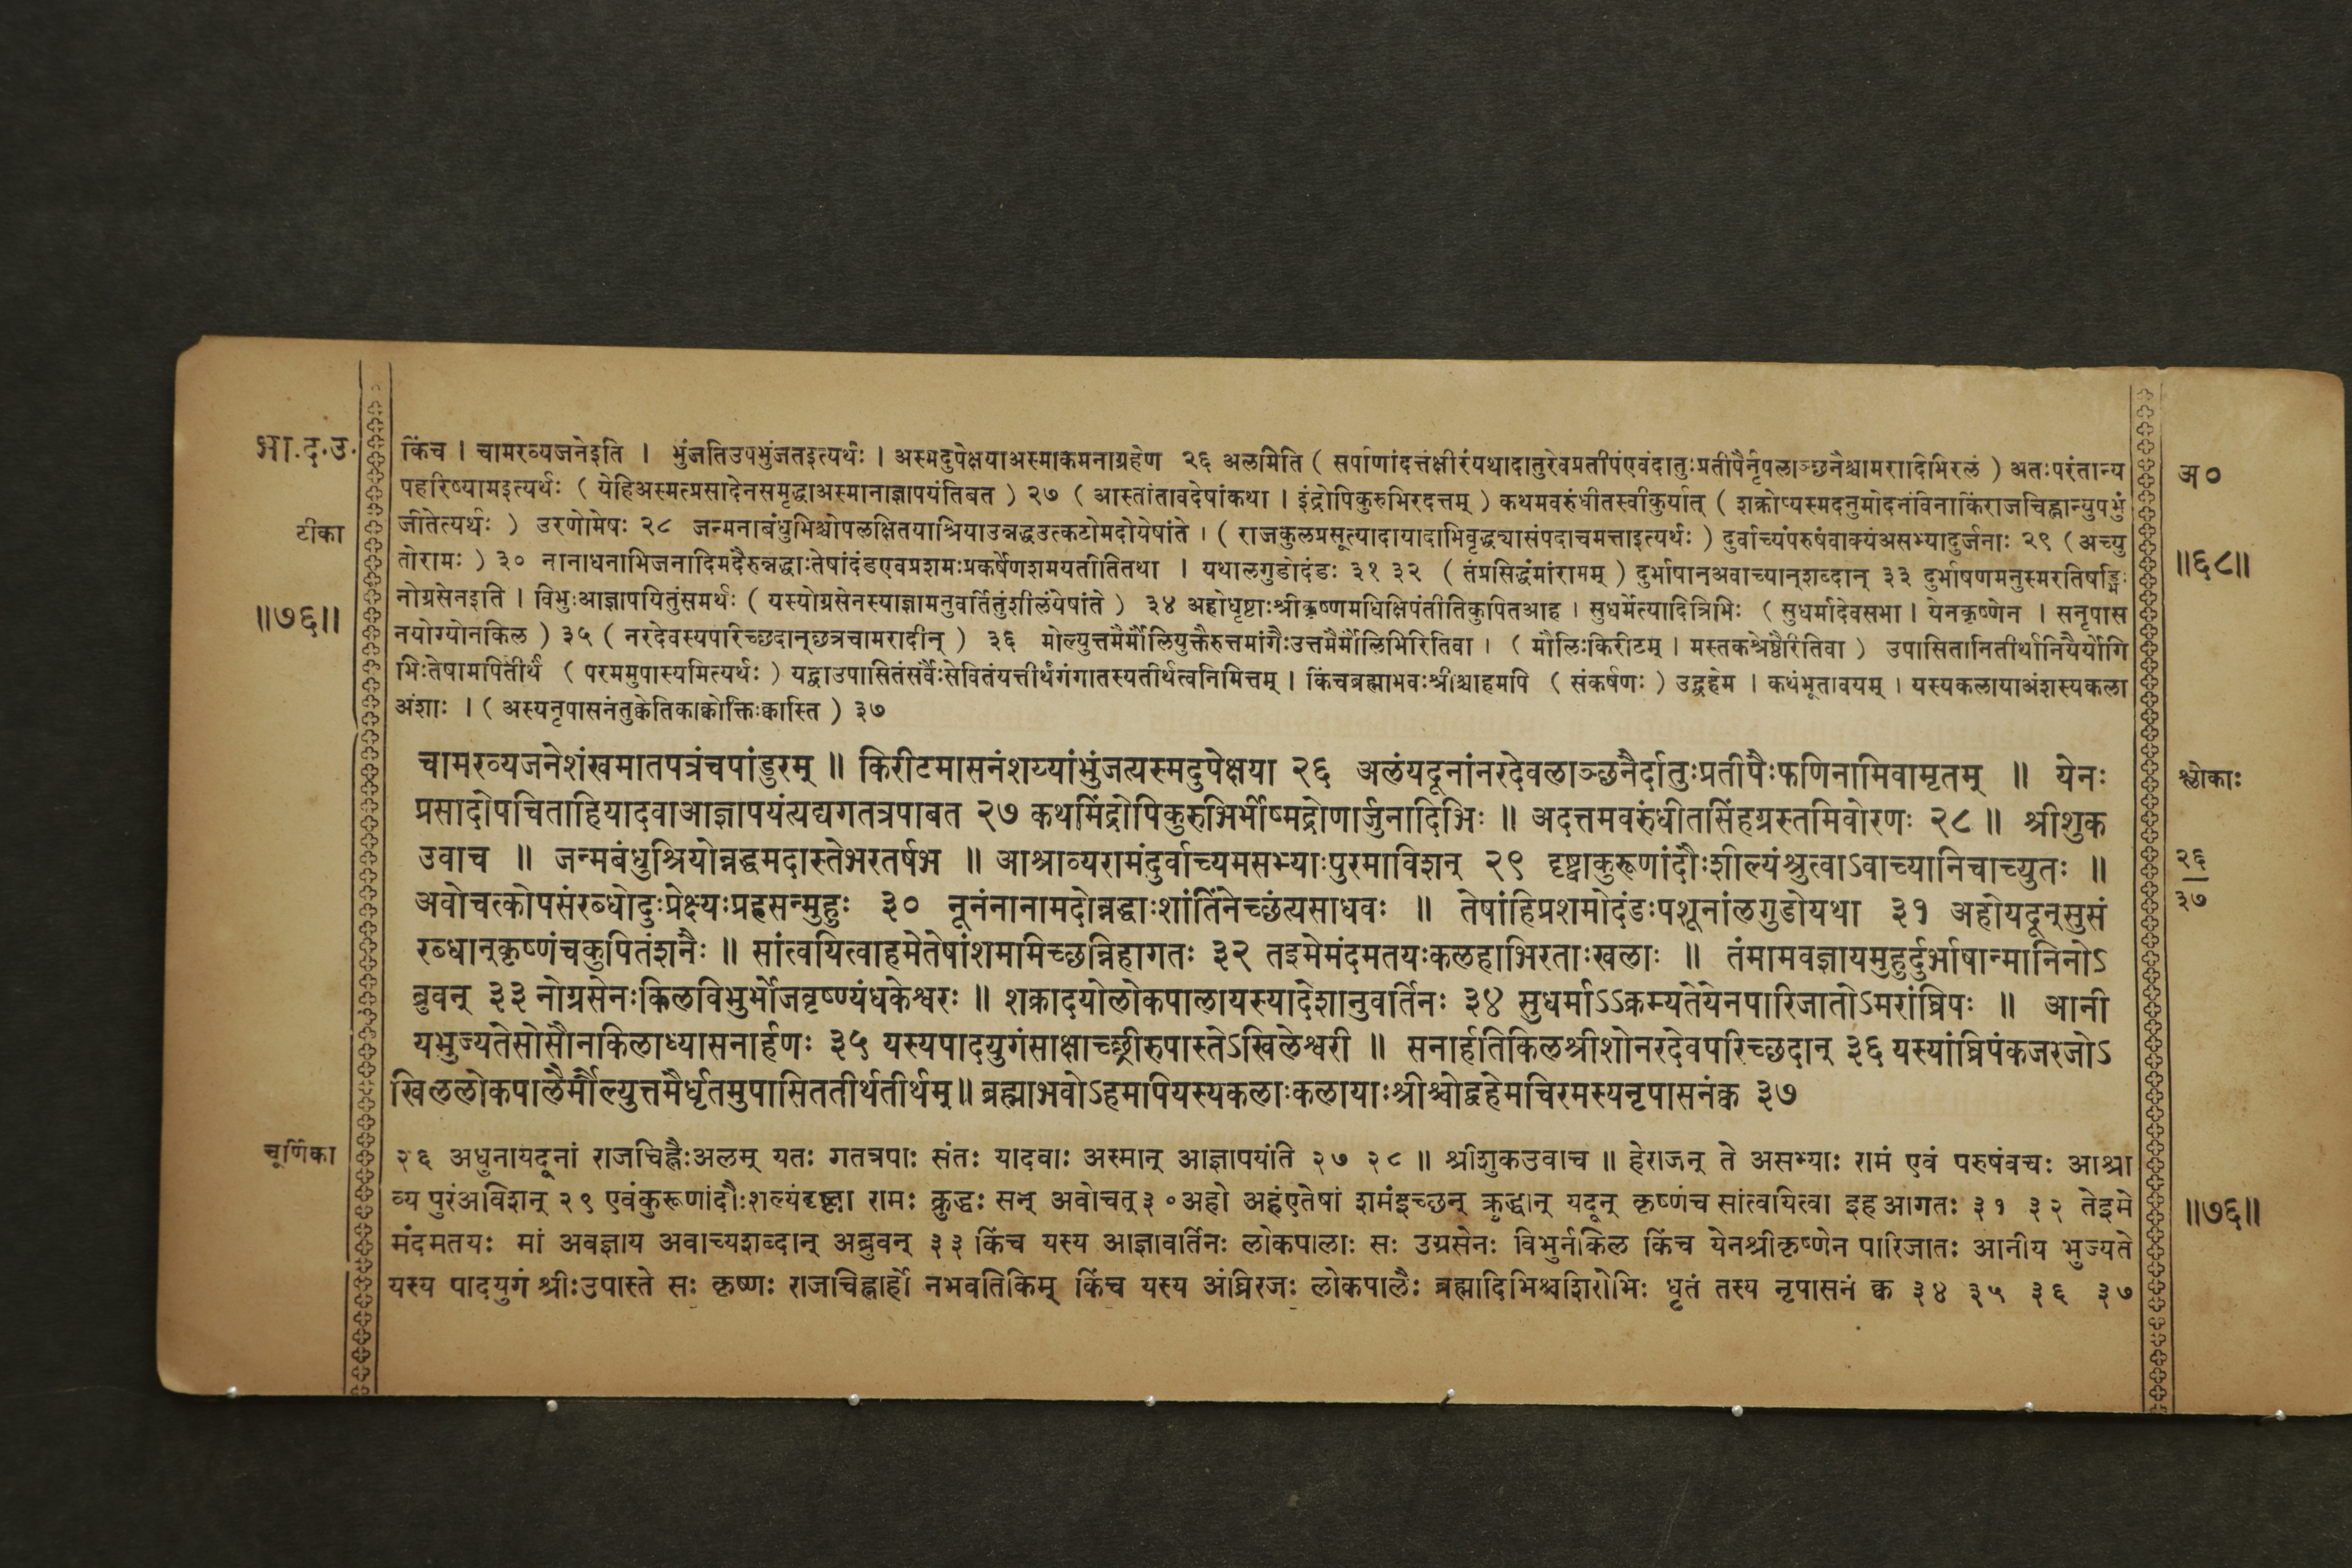 भा.द.उ.
टीका
॥७६॥
चूर्णिका
किंच । चामरव्यजनेइति । भुंजतिउपभुंजतइत्यर्थः । अस्मदुपेक्षयाअस्माकमनाग्रहेण २६ अलमिति ( सर्पाणांदत्तंक्षीरंयथादातुरेवप्रतीपंएवंदातुःप्रतीपैर्नृपलाञ्छनैश्चामरादिभिरलं ) अतःपरंतान्य
पहरिष्यामइत्यर्थः ( येहिअस्मत्प्रसादेनसमृद्धाअस्मानाज्ञापयंतिबत ) २७ ( आस्तांतावदेषांकथा । इंद्रोपिकुरुभिरदत्तम् ) कथमवरुंधीतस्वीकुर्यात् ( शक्रोप्यस्मदनुमोदनंविनाकिंराजचिह्नान्युपभुं
जीतेत्यर्थः ) उरणोमेषः २८ जन्मनाबंधुभिश्चोपलक्षितयाश्रियाउन्नद्धउत्कटोमदोयेषांते । ( राजकुलप्रसूत्यादायादाभिवृद्धच्यासंपदाचमत्ताइत्यर्थः ) दुर्वाच्यंपरुषंवाक्यंअसभ्यादुर्जनाः २९ ( अच्यु
तोरामः ) ३० नानाधनाभिजनादिमदैरुन्नद्धाःतेषांदंडएवप्रशमःप्रकर्षेणशमयतीतितथा । यथालगुडोदंडः ३१ ३२ ( तंप्रसिद्धंमांरामम् ) दुर्भाषानअवाच्यान्शब्दान् ३३ दुर्भाषणमनुस्मरतिषड्भिः
नोग्रसेनइति । विभुःआज्ञापयितुंसमर्थः ( यस्योग्रसेनस्याज्ञामनुवर्तितुंशीलंयेषांते ) ३४ अहोधृष्टाःश्रीकृष्णमधिक्षिपंतीतिकुपितआह । सुधर्मेत्यादित्रिभिः ( सुधर्मादेवसभा । येनकृष्णेन । सनृपास
नयोग्योनकिल ) ३५ ( नरदेवस्यपरिच्छदान्छत्रचामरादीन् ) ३६ मोल्युत्तमैर्मौलियुक्तैरुत्तमांगैःउत्तमैर्मौलिभिरितिवा । ( मौलिःकिरीटम् । मस्तकश्रेष्ठैरितिवा ) उपासितानितीर्थानियैर्योगि
भिःतेषामपितीर्थं ( परममुपास्यमित्यर्थः ) यद्वाउपासितंसर्वैःसेवितंयत्तीर्थंगंगातस्यतीर्थत्वनिमित्तम् । किंचब्रह्माभवःश्रीश्चाहमपि ( संकर्षणः ) उद्वहेम । कथंभूतावयम् । यस्यकलायाअंशस्यकला
अंशाः । ( अस्यनृपासनंतुक्वेतिकाक्वोक्तिःक्वास्ति ) ३७
चामरव्यजनेशंखमातपत्रंचपांडुरम् ॥ किरीटमासनंशय्यांभुंजत्यस्मदुपेक्षया २६ अलंयदूनांनरदेवलाञ्छनैर्दातुःप्रतीपैःफणिनामिवामृतम् ॥ येनः
प्रसादोपचिताहियादवाआज्ञापयंत्यद्यगतत्रपाबत २७ कथमिंद्रोपिकुरुभिर्भीष्मद्रोणार्जुनादिभिः ॥ अदत्तमवरुंधीतसिंहग्रस्तमिवोरणः २८ ॥ श्रीशुक
उवाच ॥ जन्मबंधुश्रियोन्नद्धमदास्तेभरतर्षभ ॥ आश्राव्यरामंदुर्वाच्यमसभ्याःपुरमाविशन् २९ दृष्ट्वाकुरूणांदौःशील्यंश्रुत्वाऽवाच्यानिचाच्युतः ॥
अवोचत्कोपसंरब्धोदुःप्रेक्ष्यःप्रहसन्मुहुः ३० नूनंनानामदोन्नद्धाःशांतिंनेच्छंत्यसाधवः ॥ तेषांहिप्रशमोदंडःपशूनांलगुडोयथा ३१ अहोयदून्सुसं
रब्धान्कृष्णंचकुपितंशनैः ॥ सांत्वयित्वाहमेतेषांशमामिच्छन्निहागतः ३२ तइमेमंदमतयःकलहाभिरताःखलाः ॥ तंमामवज्ञायमुहुर्दुर्भाषान्मानिनोऽ
ब्रुवन् ३३ नोग्रसेनःकिलविभुर्भोजवृष्ण्यंधकेश्वरः ॥ शक्रादयोलोकपालायस्यादेशानुवर्तिनः ३४ सुधर्माऽऽक्रम्यतेयेनपारिजातोऽमरांघ्रिपः ॥ आनी
यभुज्यतेसोसौनकिलाध्यासनार्हणः ३५ यस्यपादयुगंसाक्षाच्छ्रीरुपास्तेऽखिलेश्वरी ॥ सनार्हतिकिलश्रीशोनरदेवपरिच्छदान् ३६ यस्यांघ्रिपंकजरजोऽ
खिललोकपालैर्मौल्युत्तमैर्धृतमुपासिततीर्थतीर्थम्॥ ब्रह्माभवोऽहमपियस्यकलाःकलायाःश्रीश्चोद्वहेमचिरमस्यनृपासनंक्व ३७
२६ अधुनायदूनां राजचिह्नैःअलम् यतः गतत्रपाः संतः यादवाः अस्मान् आज्ञापयंति २७ २८ ॥ श्रीशुकउवाच ॥ हेराजन् ते असभ्याः रामं एवं परुषंवचः आश्रा
व्य पुरंअविशन् २९ एवंकुरूणांदौःशल्यंदृष्ट्वा रामः क्रुद्धः सन् अवोचत्३०अहो अहंएतेषां शमंइच्छन् क्रुद्धान् यदून् कृष्णंच सांत्वयित्वा इहआगतः ३१ ३२ तेइमे
मंदमतयः मां अवज्ञाय अवाच्यशब्दान् अब्रुवन् ३३ किंच यस्य आज्ञावर्तिनः लोकपालाः सः उग्रसेनः विभुर्नकिल किंच येनश्रीकृष्णेन पारिजातः आनीय भुज्यते
यस्य पादयुगं श्रीःउपास्ते सः कृष्णः राजचिह्नार्हो नभवतिकिम् किंच यस्य अंघ्रिरजः लोकपालैः ब्रह्मादिभिश्चशिरोभिः धृतं तस्य नृपासनं क्व ३४ ३५ ३६ ३७
अ०
॥६८॥
श्लोकाः
२६
३७
॥७६॥